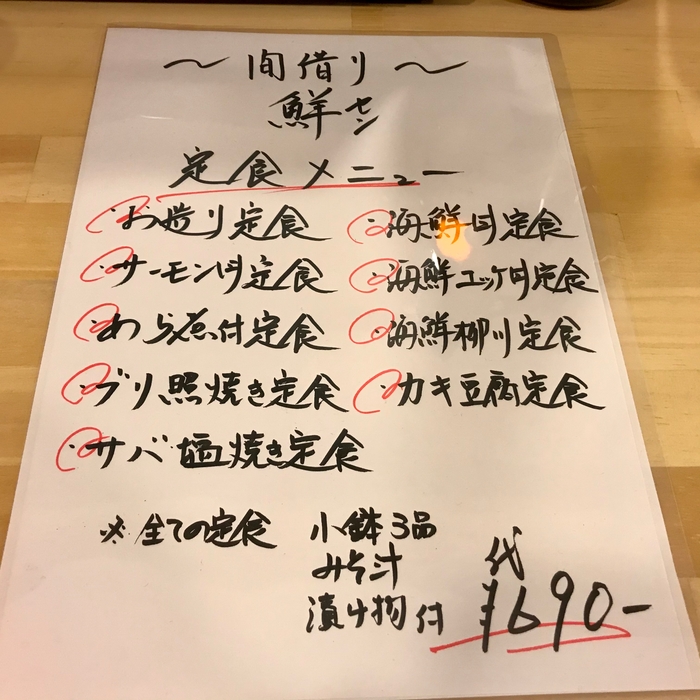 ～間借り～
鮮セン
定食メニュー
・お造り定食
・サーモン丼定食
・あら煮付定食
・ブリ照焼き定食
・サバ塩焼き定食
・海鮮丼定食
・海鮮ユッケ丼定食
・海鮮柳川定食
・カキ豆腐定食
※全ての定食 小鉢3品
みそ汁
漬け物付
代
¥690-